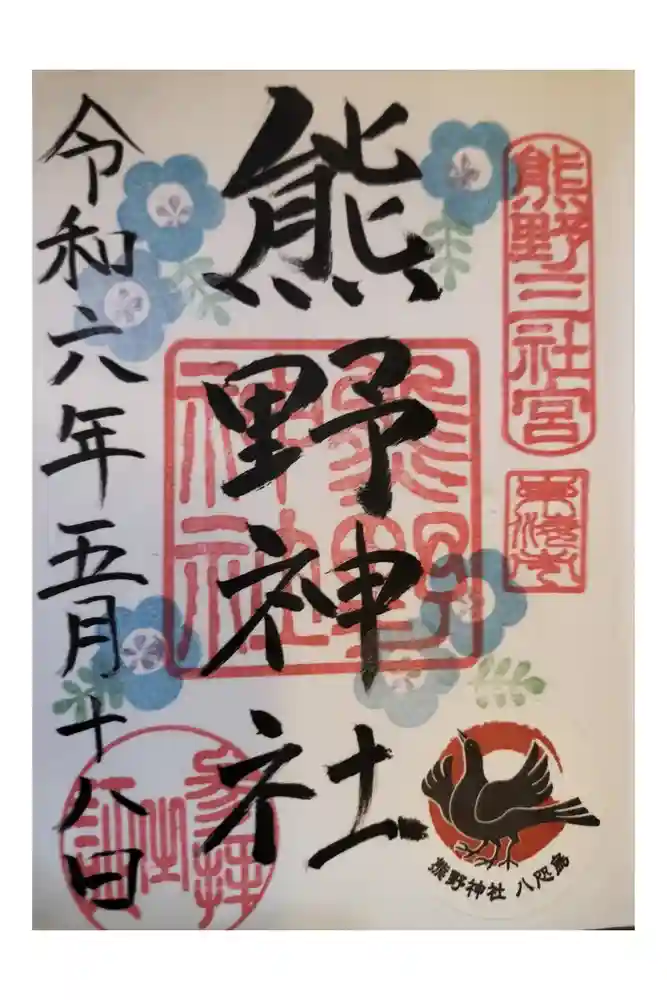 熊野三社宮
熊野神社
熊野
神社
令和六年五月十八日
参拝
熊野神社 八咫烏